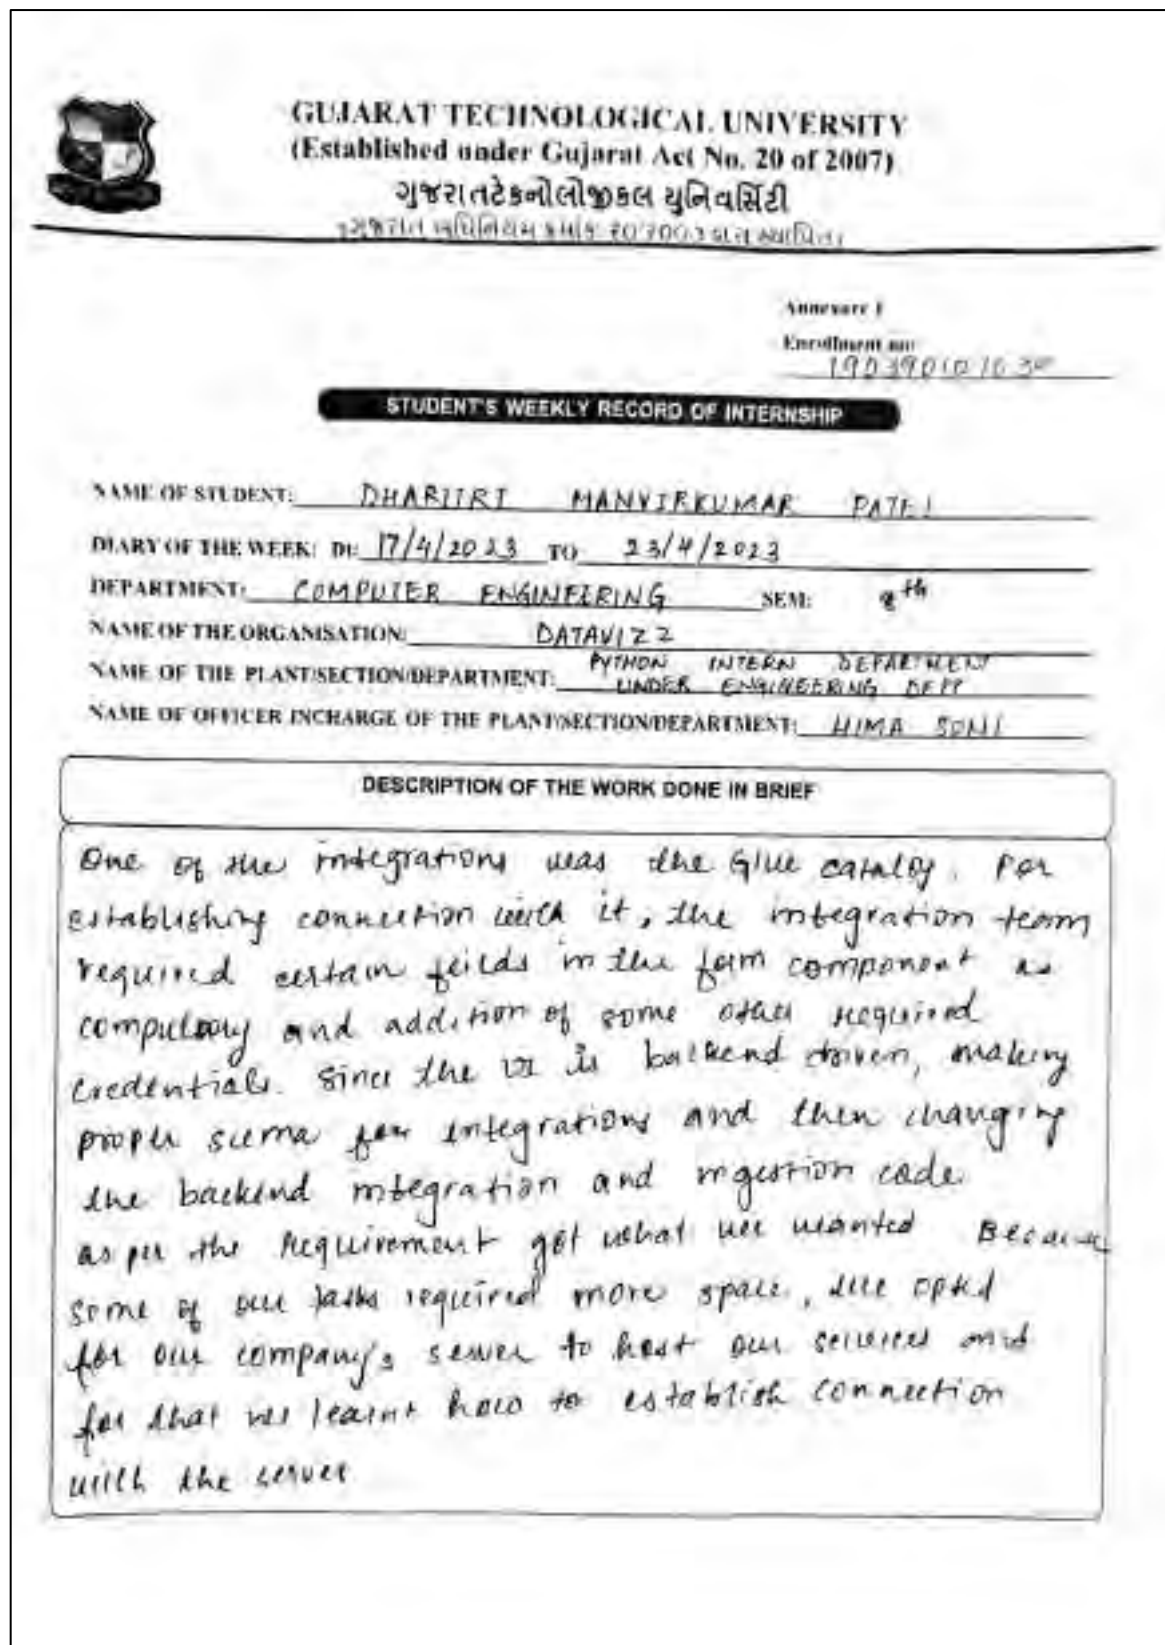 GUJARAT TECHNOLOGICAL UNIVERSITY
(Established under Gujarat Act No. 20 of 2007)
ગુજરાતટેકનોલોજીકલ યુનિવર્સિટી
Annexure I
Enrollment no:
STUDENT'S WEEKLY RECORD OF INTERNSHIP
NAME OF STUDENT: DHARITRI MANVIRKUMAR PATEL
DIARY OF THE WEEK: Dt: 17/4/2023 TO 23/4/2023
DEPARTMENT: COMPUTER ENGINEERING SEM: 8th
NAME OF THE ORGANISATION: DATAVIZZ
PYTHON INTERN DEPARTMENT
NAME OF THE PLANT/SECTION/DEPARTMENT: UNDER ENGINEERING DEPP
NAME OF OFFICER INCHARGE OF THE PLANT/SECTION/DEPARTMENT: HIMA SONI
DESCRIPTION OF THE WORK DONE IN BRIEF
One of the integrations was the Glue catalog. For
establishing connection with it, the integration team
required certain feilds in the form component as
compulsory and addition of some other required
credentials. Since the UI is backend driven, making
proper scema for integrations and then changing
the backend integration and ingestion code
as per the requirement got what we wanted Because
some of our tasks required more space, we opted
for our company's server to host our services and
for that we learnt how to establish connection
with the server